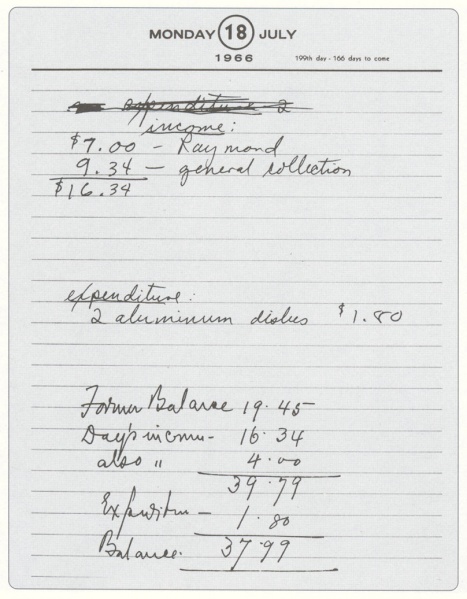 MONDAY 18 JULY
1966 199th day - 166 days to come
expenditure 2
income:
$7.00 - Raymond
9.34 - general collection
$16.34
expenditure:
2 aluminum dishes $1.80
Former Balance 19.45
Day's income - 16.34
also " 4.00
39.79
Expenditure - 1.80
Balance. 37.99